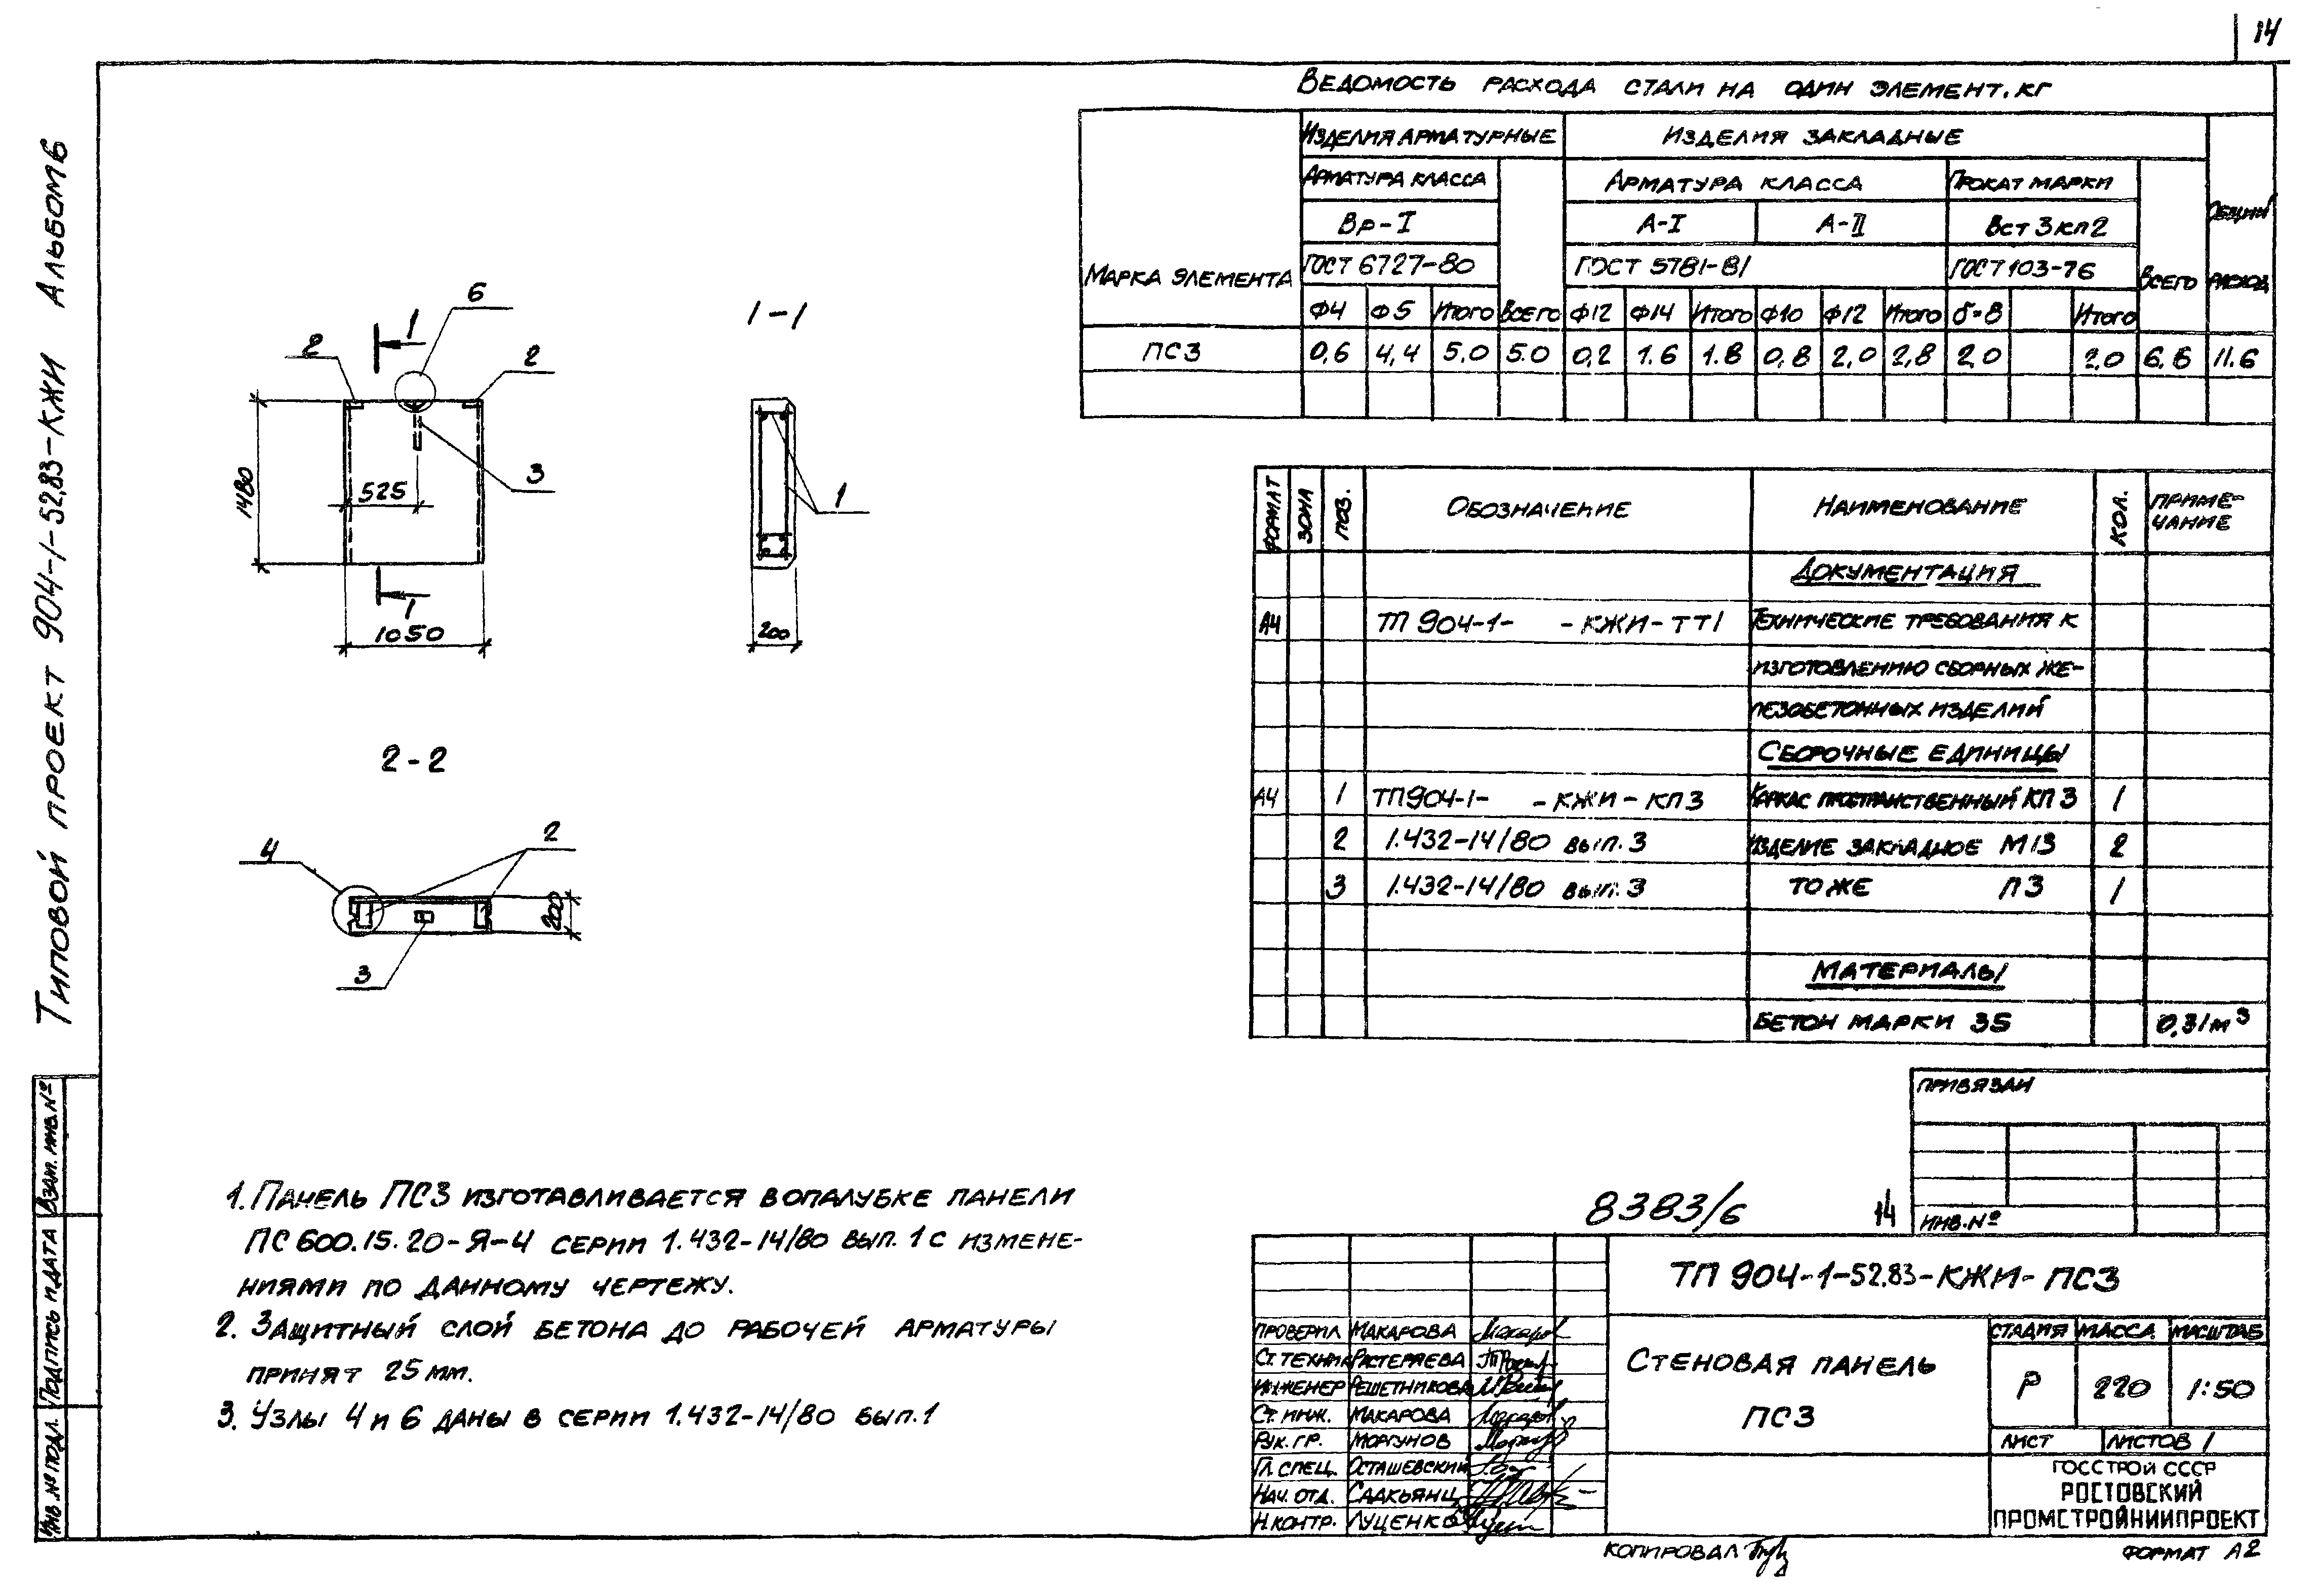 14
Типовой проект 904-1-52.83-КЖИ Альбом 6
Ведомость расхода стали на один элемент, кг
Марка элемента
Изделия арматурные
Изделия закладные
Общий расход
Арматура класса
Всего
Арматура класса
Прокат марки
Всего
Вр-I
А-I
А-II
Вст3кп2
ГОСТ 6727-80
ГОСТ 5781-81
ГОСТ 103-76
Ф4 Ф5 Итого Ф12 Ф14 Итого Ф10 Ф12 Итого δ=8 Итого
ПС3 0,6 4,4 5.0 5.0 0,2 1.6 1.8 0,8 2,0 2,8 2,0 2,0 6,6 11.6
6
1
2
2
3
525
1480
1
1050
1-1
1
200
2-2
4
2
200
3
Формат Зона Поз. Обозначение Наименование Кол. Примечание
Документация
А4 ТП 904-1- -КЖИ-ТТ1 Технические требования к
изготовлению сборных же-
лезобетонных изделий
Сборочные единицы
А4 1 ТП904-1- -КЖИ-КП3 Каркас пространственный КП3 1
2 1.432-14/80 вып. 3 Изделие закладное М13 2
3 1.432-14/80 вып. 3 То же П3 1
Материалы
Бетон марки 35 0,31м³
1. Панель ПС3 изготавливается в опалубке панели
ПС600.15.20-Я-4 серии 1.432-14/80 вып. 1 с измене-
ниями по данному чертежу.
2. Защитный слой бетона до рабочей арматуры
принят 25мм.
3. Узлы 4 и 6 даны в серии 1.432-14/80 вып.1
Взам. инв. №
Подпись и дата
Инв. № подл.
Привязан
Инв. №
8383/6 14
ТП 904-1-52.83-КЖИ-ПС3
Проверил Макарова
Ст. техник Растеряева
Инженер Решетникова
Ст. инж. Макарова
Рук. гр. Моргунов
Гл. спец. Осташевский
Нач. отд. Саакьянц
Н. контр. Луценко
Стеновая панель
ПС3
Стадия Масса Масштаб
Р 220 1:50
Лист Листов 1
ГОССТРОЙ СССР
РОСТОВСКИЙ
ПРОМСТРОЙНИИПРОЕКТ
Копировал
Формат А2